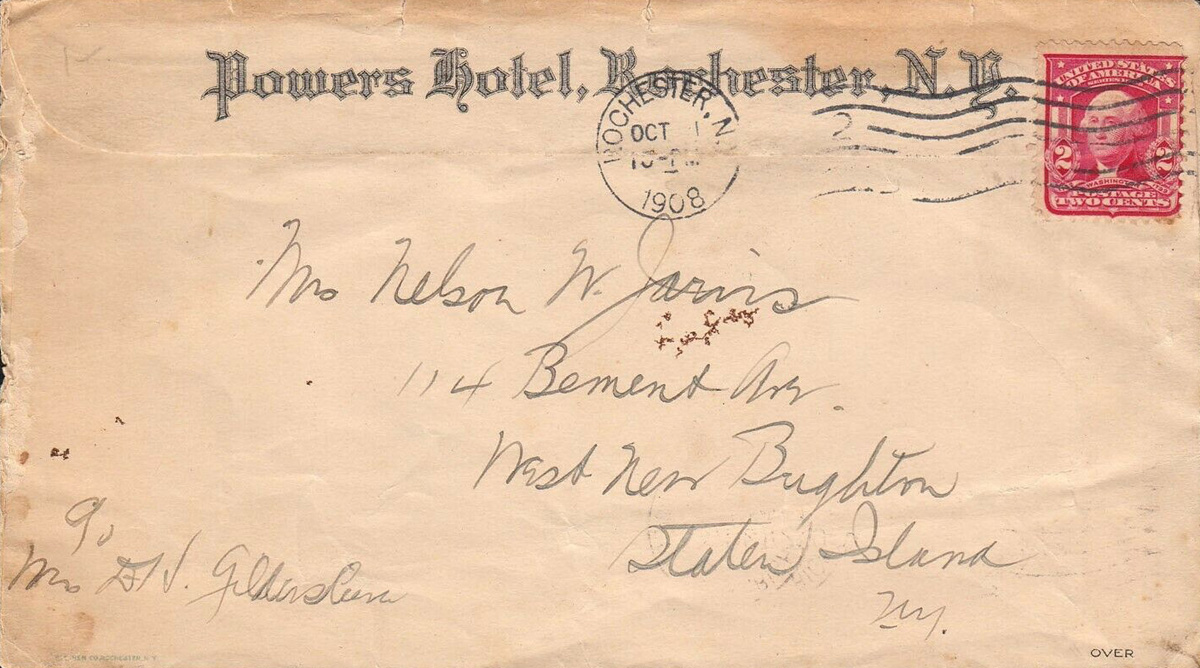 Powers Hotel, Rochester, N.Y.
ROCHESTER, N
OCT 1
1908
2
UNITED STATES
OF AMERICA
2 2
WASHINGTON
POSTAGE
TWO CENTS
Mrs Nelson W. Jarvis
114 Bement Ave.
West New Brighton
Staten Island
N.Y.
c/o
Mrs
OVER